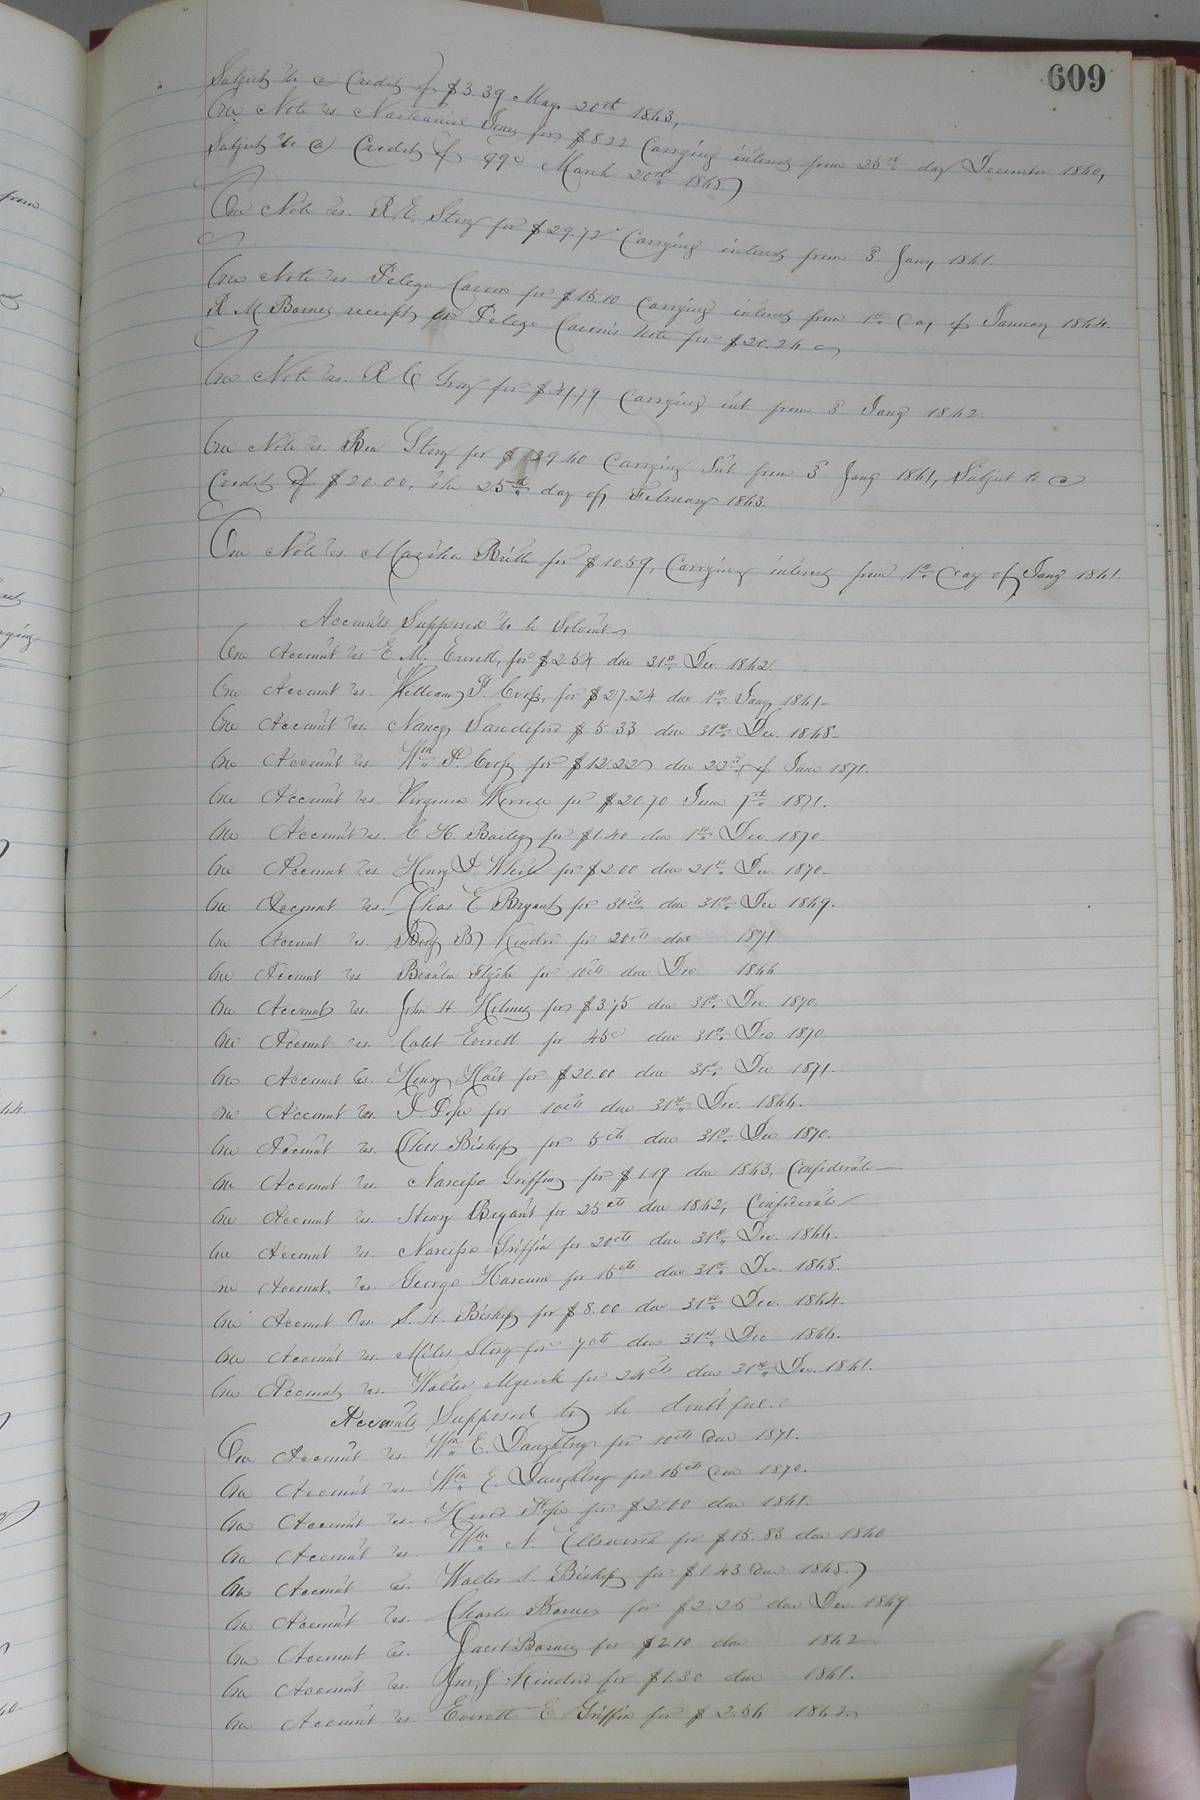 609
Subject to a Credit of $3.39 May 20th 1863,
One Note vs Nathaniel for $8.22 Carrying interest from 25th day December 1860,
Subject to a Credit of 99c March 20th 1865
One Note vs. R. E. Story for $29.72 Carrying interest from 3d Jany 1861.
One Note vs. Pelege for $15.10 Carrying interest from 1st day of January 1864.
R M Barnes receipt for Pelege Note for $20.24
One Note vs. R C Gray for Carrying int from 3d Jany 1862.
One Note vs. Ben Story for $39.60 Carrying Int from 3d Jany 1861, Subject to a
Credit of $20.00, the 25th day of February 1863.
One Note vs. Britt for $10.59, Carrying interest from 1st day of Jany 1861.
Accounts Supposed to be Solvent
One Account vs E. M. Everett, for $2.54 due 31st Dec. 1862
One Account vs. William P. for $27.24 due 1st Jany 1861
One Account vs. Nancy Sandeford $5.33 due 31st Dec. 1868
One Account vs. Wm P. for $12.22 due 22d of June 1871.
One Account vs. Virginia for $20.70 June 7th 1871.
One Account vs. C. H. Bailey for $1.40 due 1st Dec 1870
One Account vs. Henry D. White for $2.00 due 21st Dec. 1870
One Account vs. Chas E Bryant for 30cts due 31st Dec 1869.
One Account vs. Benj B Kindred for 20cts due 1871
One Account vs for 10cts due Dec. 1866
One Account vs. John H. Holmes for $3.75 due 31st Dec. 1870.
One Account vs. Calet Everett for 45c due 31st Dec 1870.
One Account vs. Henry Hart for $20.00 due 31st Dec 1871.
One Account vs. J. Pope for 10cts due 31st Dec. 1866.
One Account vs. Chas Bishop for 5cts due 31st Dec 1870.
One Account vs. Narcissa Griffin for $1.19 due 1863, Confederate
One Account vs. Henry Bryant for 25cts due 1862, Confederate
One Account vs. Narcissa Griffin for 20cts due 31st Dec. 1866.
One Account, vs. George Harcum for 15cts due 31st Dec. 1868.
One Account vs. S. H. Bishop for $8.00 due 31st Dec. 1864.
One Account vs. Miles Story for 70cts due 31st Dec 1866.
One Account vs. Walter Myrick for 24cts due 31st Dec. 1861.
Accounts Supposed to be doubtful.
One Account vs. Wm E. Daughtrey for 10cts due 1871.
One Account vs. Wm E. Daughtrey for 15cts due 1870.
One Account vs. Pope for $2.00 due 1861.
One Account vs. Wm N. Ellsworth for $15.83 due 1860
One Account vs. Walter S. Bishop for $1.43 due 1865.
One Account vs. Charles Barnes for $2.25 due Dec. 1869
One Account vs. Jacob Barnes for $2.10 due 1862
One Account vs. Jno. J. Kindred for $1.30 due 1861.
One Account vs. Everett E. Griffin for $2.56 1862